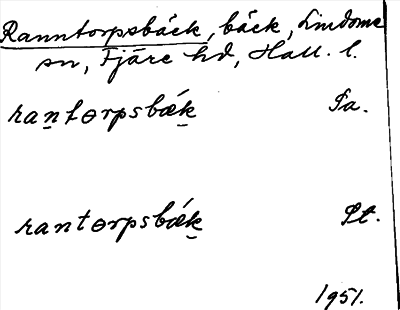 Ranntorpsbäck, bäck, Lindome
sn, Fjäre hd, Hall. l.
ran̲tɵrpsbǽk̲ Pa.
rantɵrpsbǽk̲ Pt.
1951.